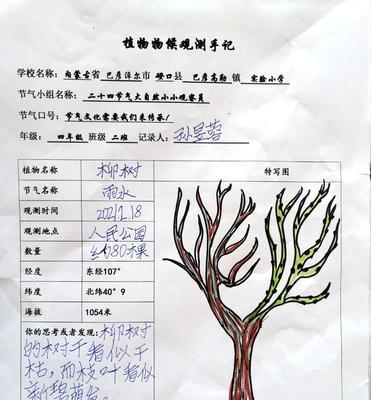 植物物候观测手记
学校名称: 内蒙古省 巴彦淖尔市 磴口县 巴彦高勒镇 实验小学
节气小组名称: 二十四节气大自然小小观察员
节气口号: 节气文化需要我们来传承!
年级: 四年级 班级 二班 记录人: 孙昱蓉
植物名称 柳树 特写图
节气名称 雨水
观测时间 2021.2.18
观测地点 人民公园
数量 约80棵
经度 东经107°
纬度 北纬40°9
海拔 1054米
你的思考或者发现: 柳树
的树干看似干
枯,而枝叶看似
新碧萌发。